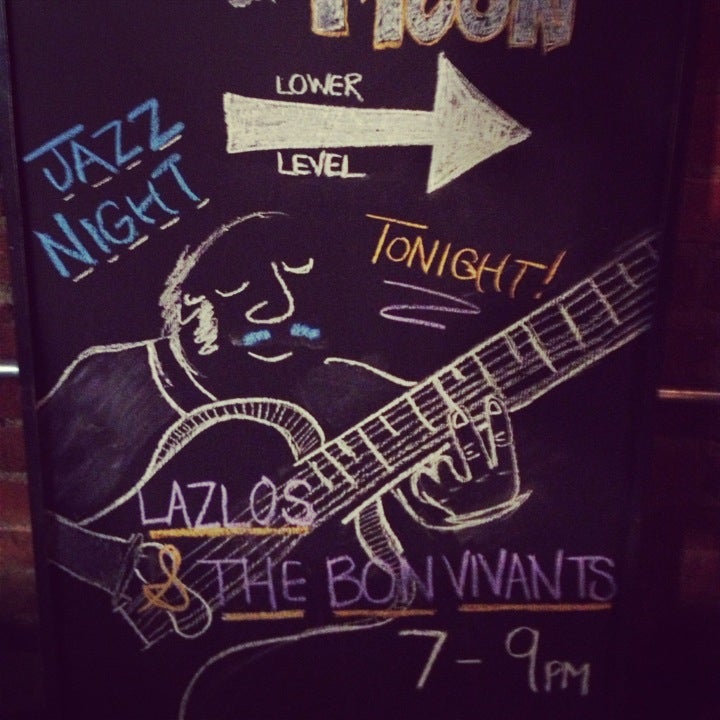 MOON
LOWER
LEVEL
JAZZ
NIGHT
TONIGHT!
LAZLOS
& THE BON VIVANTS
7-9PM